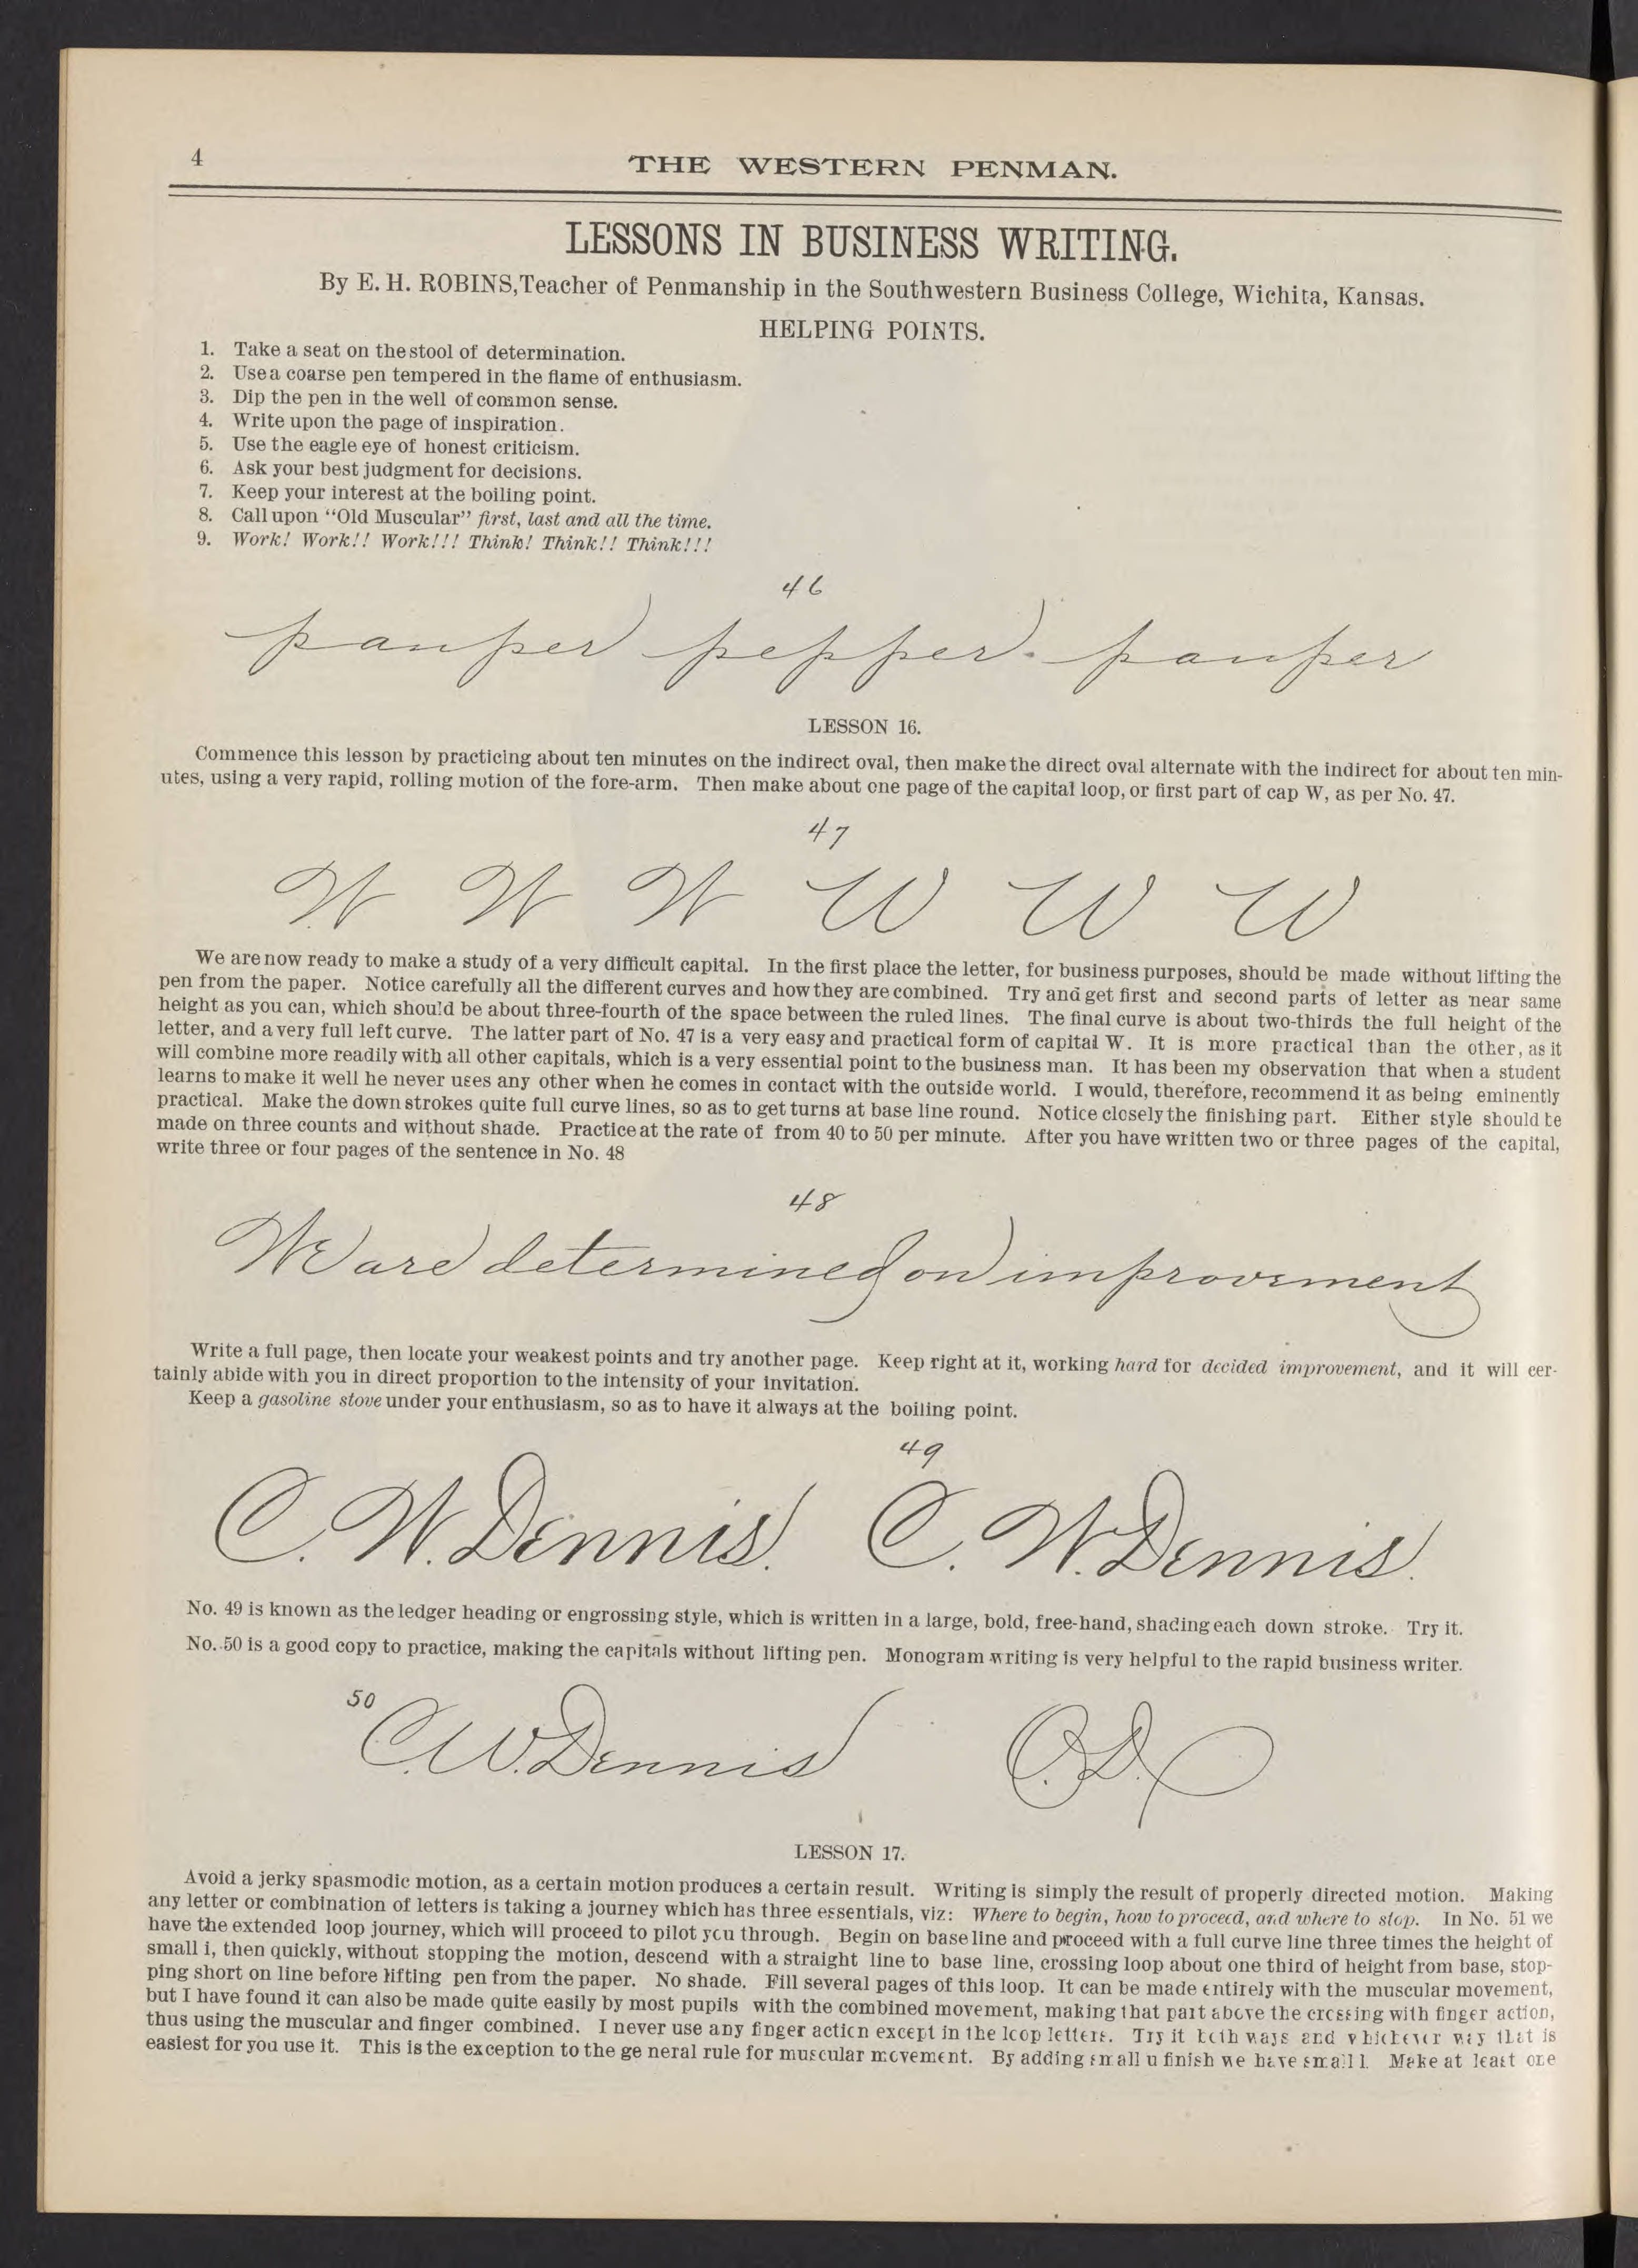 4
THE WESTERN PENMAN.
LESSONS IN BUSINESS WRITING.
By E. H. ROBINS, Teacher of Penmanship in the Southwestern Business College, Wichita, Kansas.
HELPING POINTS.
1. Take a seat on the stool of determination.
2. Use a coarse pen tempered in the flame of enthusiasm.
3. Dip the pen in the well of common sense.
4. Write upon the page of inspiration.
5. Use the eagle eye of honest criticism.
6. Ask your best judgment for decisions.
7. Keep your interest at the boiling point.
8. Call upon “Old Muscular” first, last and all the time.
9. Work! Work!! Work!!! Think! Think!! Think!!!
46
pauper pepper. pauper
LESSON 16.
Commence this lesson by practicing about ten minutes on the indirect oval, then make the direct oval alternate with the indirect for about ten min-
utes, using a very rapid, rolling motion of the fore-arm. Then make about one page of the capital loop, or first part of cap W, as per No. 47.
47
W W W W W W
We are now ready to make a study of a very difficult capital. In the first place the letter, for business purposes, should be made without lifting the
pen from the paper. Notice carefully all the different curves and how they are combined. Try and get first and second parts of letter as near same
height as you can, which should be about three-fourth of the space between the ruled lines. The final curve is about two-thirds the full height of the
letter, and a very full left curve. The latter part of No. 47 is a very easy and practical form of capital W. It is more practical than the other, as it
will combine more readily with all other capitals, which is a very essential point to the business man. It has been my observation that when a student
learns to make it well he never uses any other when he comes in contact with the outside world. I would, therefore, recommend it as being eminently
practical. Make the down strokes quite full curve lines, so as to get turns at base line round. Notice closely the finishing part. Either style should be
made on three counts and without shade. Practice at the rate of from 40 to 50 per minute. After you have written two or three pages of the capital,
write three or four pages of the sentence in No. 48
48
We are determined on improvement
Write a full page, then locate your weakest points and try another page. Keep right at it, working hard for decided improvement, and it will cer-
tainly abide with you in direct proportion to the intensity of your invitation.
Keep a gasoline stove under your enthusiasm, so as to have it always at the boiling point.
49
C. W. Dennis. C. W. Dennis.
No. 49 is known as the ledger heading or engrossing style, which is written in a large, bold, free-hand, shading each down stroke. Try it.
No. 50 is a good copy to practice, making the capitals without lifting pen. Monogram writing is very helpful to the rapid business writer.
50
C.W. Dennis C.D.
LESSON 17.
Avoid a jerky spasmodic motion, as a certain motion produces a certain result. Writing is simply the result of properly directed motion. Making
any letter or combination of letters is taking a journey which has three essentials, viz: Where to begin, how to proceed, and where to stop. In No. 51 we
have the extended loop journey, which will proceed to pilot you through. Begin on base line and proceed with a full curve line three times the height of
small i, then quickly, without stopping the motion, descend with a straight line to base line, crossing loop about one third of height from base, stop-
ping short on line before lifting pen from the paper. No shade. Fill several pages of this loop. It can be made entirely with the muscular movement,
but I have found it can also be made quite easily by most pupils with the combined movement, making that part above the crossing with finger action,
thus using the muscular and finger combined. I never use any finger action except in the loop letters. Try it both ways and whichever way that is
easiest for you use it. This is the exception to the ge neral rule for muscular movement. By adding small u finish we have small l. Make at least one